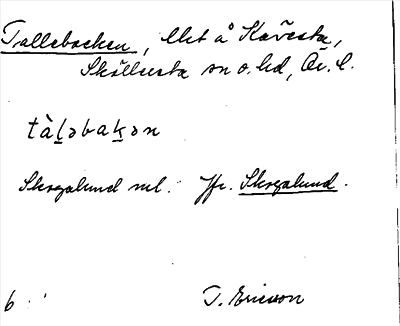 Tallebacken, Det å Kävesta,
Sköllersta sn o. hd, Ör. l.
tàḻəbaḵən
Skogalund ml. Jfr. Skogalund.
6
T. Ericsson